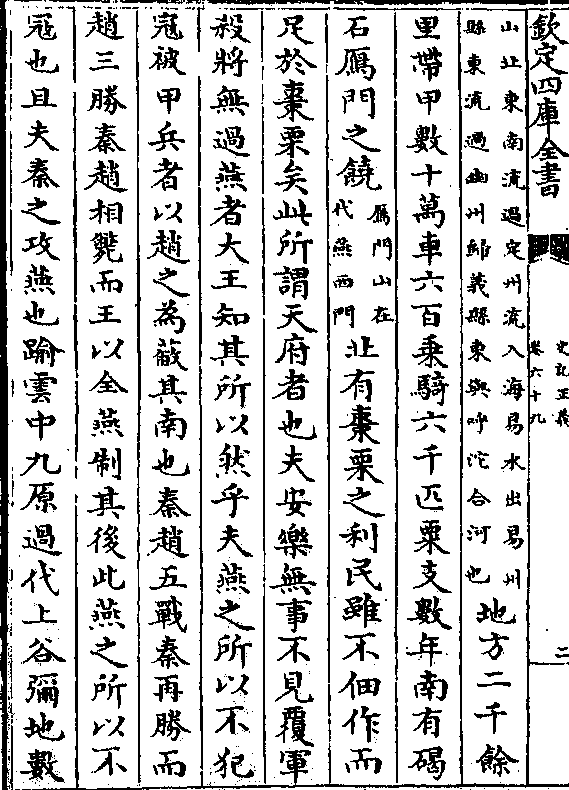 欽定四庫全書
史記正義
卷六十九
二
山北東南流過定州流入海易水出易州
縣東流過幽州歸義縣東與呼沱合河也
地方二千餘
里帶甲數十萬車六百乘騎六千匹粟支數年南有碣
石鴈門之饒
鴈門山在
代燕西門
北有棗栗之利民雖不佃作而
足於棗栗矣此所謂天府者也夫安樂無事不見覆軍
殺將無過燕者大王知其所以然乎夫燕之所以不犯
寇被甲兵者以趙之為蔽其南也秦趙五戰秦再勝而
趙三勝秦趙相斃而王以全燕制其後此燕之所以不
寇也且夫秦之攻燕也踰雲中九原過代上谷彌地數